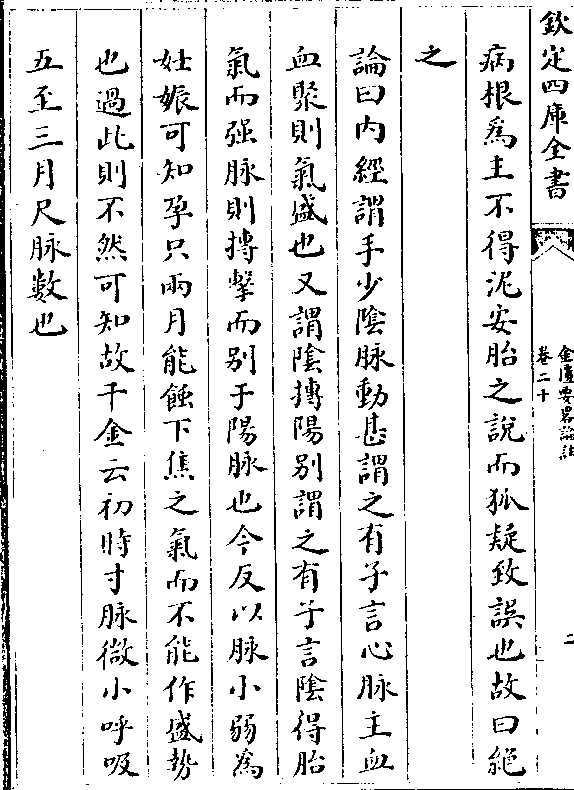 欽定四庫全書
金匱要畧論註
卷二十
二
病根爲主不得泥安胎之說而狐疑致誤也故曰絕
之
論曰内經謂手少陰脉動甚謂之有子言心脉主血
血聚則氣盛也又謂陰摶陽别謂之有子言陰得胎
氣而强脉則摶擊而别于陽脉也今反以脉小弱為
妊娠可知孕只兩月能蝕下焦之氣而不能作盛勢
也過此則不然可知故千金云初時寸脉微小呼吸
五至三月尺脉數也